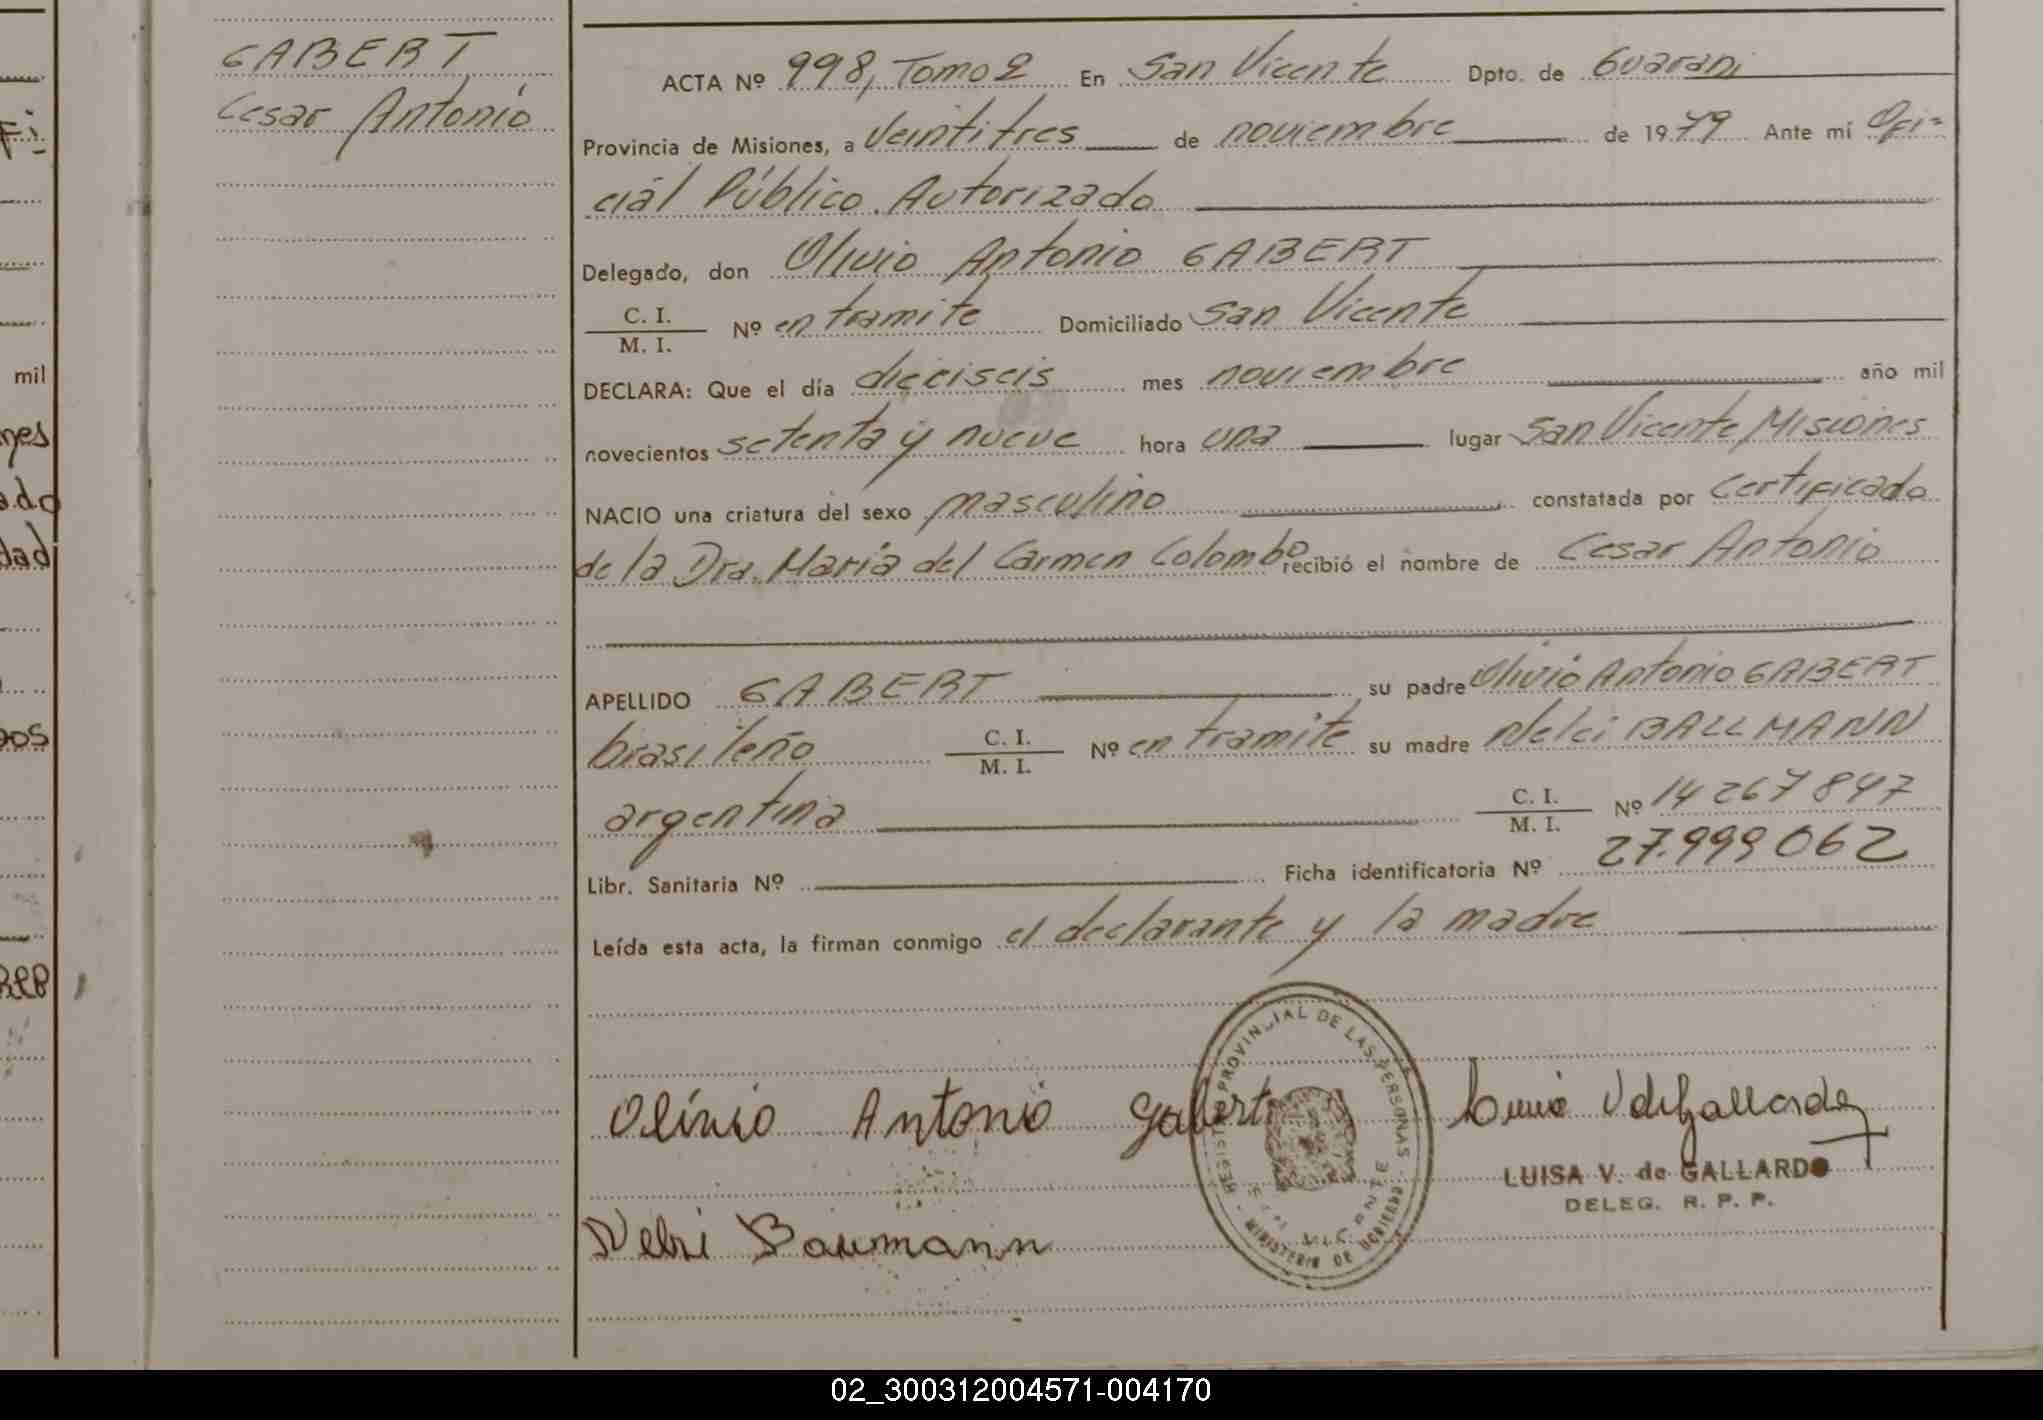 GABERT
Cesar Antonio
mil
ACTA Nº 998, Tomo 2 En San Vicente Dpto. de Guarani
Provincia de Misiones, a veintitres de noviembre de 1979 Ante mí Ofi=
cial Público Autorizado
Delegado, don Olivio Antonio GABERT
C. I. / M. I. Nº en tramite Domiciliado San Vicente
DECLARA: Que el día dieciseis mes noviembre año mil
novecientos setenta y nueve hora una lugar San Vicente Misiones
NACIO una criatura del sexo masculino constatada por certificado
de la Dra. Maria del Carmen Colombo recibió el nombre de Cesar Antonio
APELLIDO GABERT su padre Olivio Antonio GABERT
brasileño C. I. / M. I. Nº en tramite su madre Nelci BALLMANN
argentina C. I. / M. I. Nº 14267847
Libr. Sanitaria Nº Ficha identificatoria Nº 27.999062
Leída esta acta, la firman conmigo el declarante y la madre
REGISTRO PROVINCIAL DE LAS PERSONAS
SAN VICENTE
MINISTERIO DE GOBIERNO
Olivio Antonio Gabert
LUISA V. de GALLARDO
DELEG. R. P. P.
Baumann
02_300312004571-004170